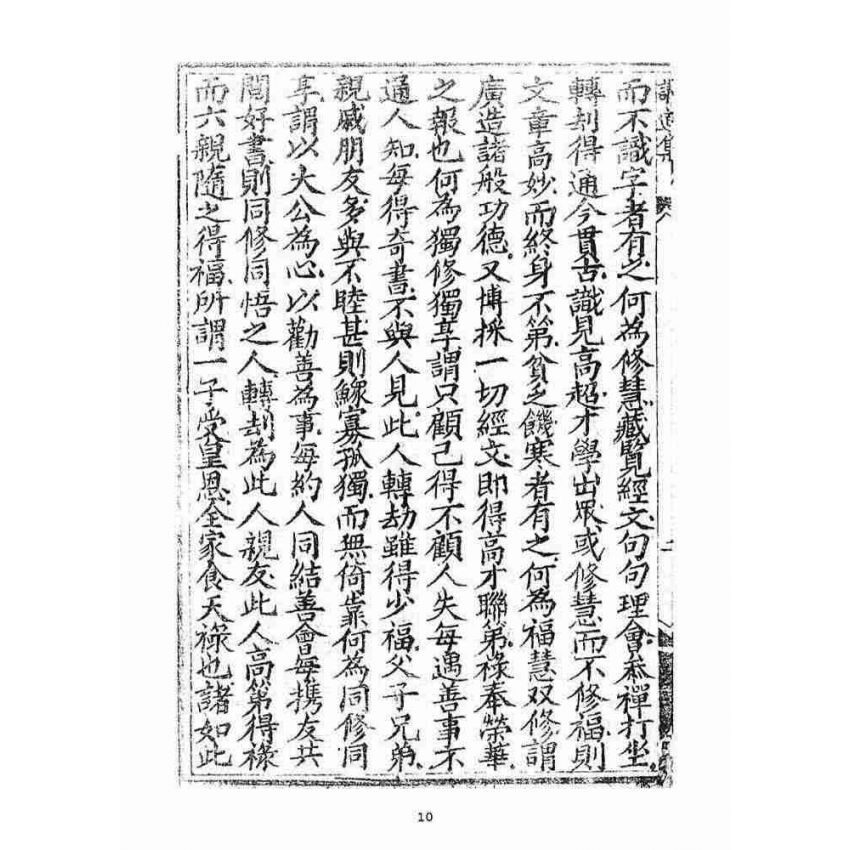 而不識字者有之何為修慧藏覽經文句句理會叅禪打坐
轉刼得通今貫古識見高超才學出眾或修慧而不修福則
文章高妙而終身不第貧乏饑寒者有之何為福慧双修謂
廣造諸般功德又博採一切經文即得高才聯第祿奉榮華
之報也何為獨修獨享謂只顧己得不顧人失每遇善事不
通人知每得奇書不與人見此人轉劫雖得少福父子兄弟
親戚朋友多與不睦甚則鰥寡孤獨而無倚靠何為同修同
享謂以大公為心以勸善為事每約人同結善會每携友共
閱好書則同修同悟之人轉刼為此人親友此人高第得祿
而六親隨之得福所謂一子受皇恩全家食天祿也諸如此
10